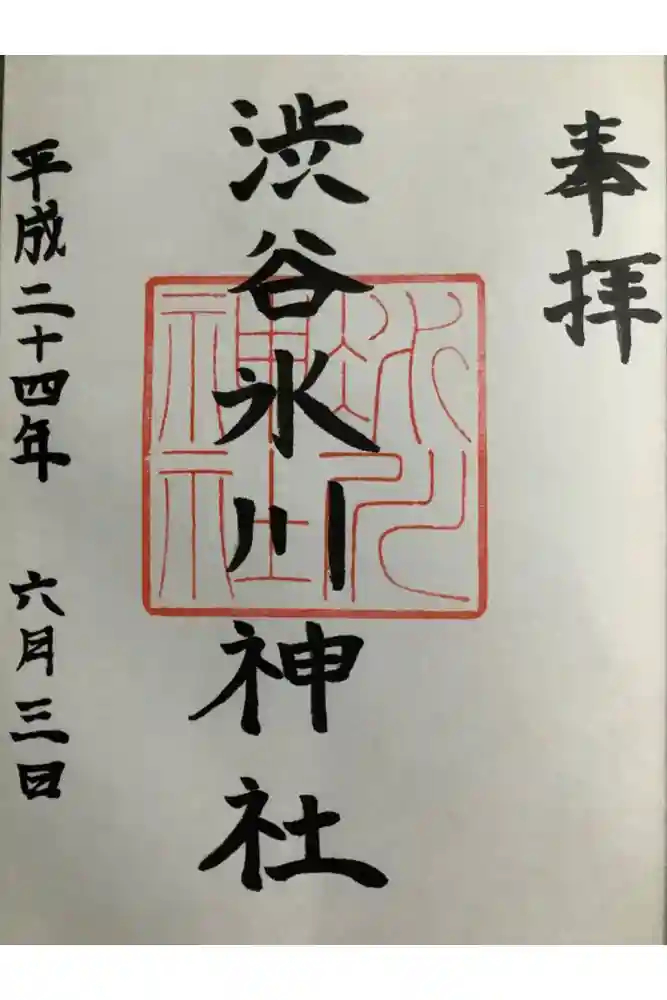 奉拝
渋谷氷川神社
氷川
神社
平成二十四年 六月三日